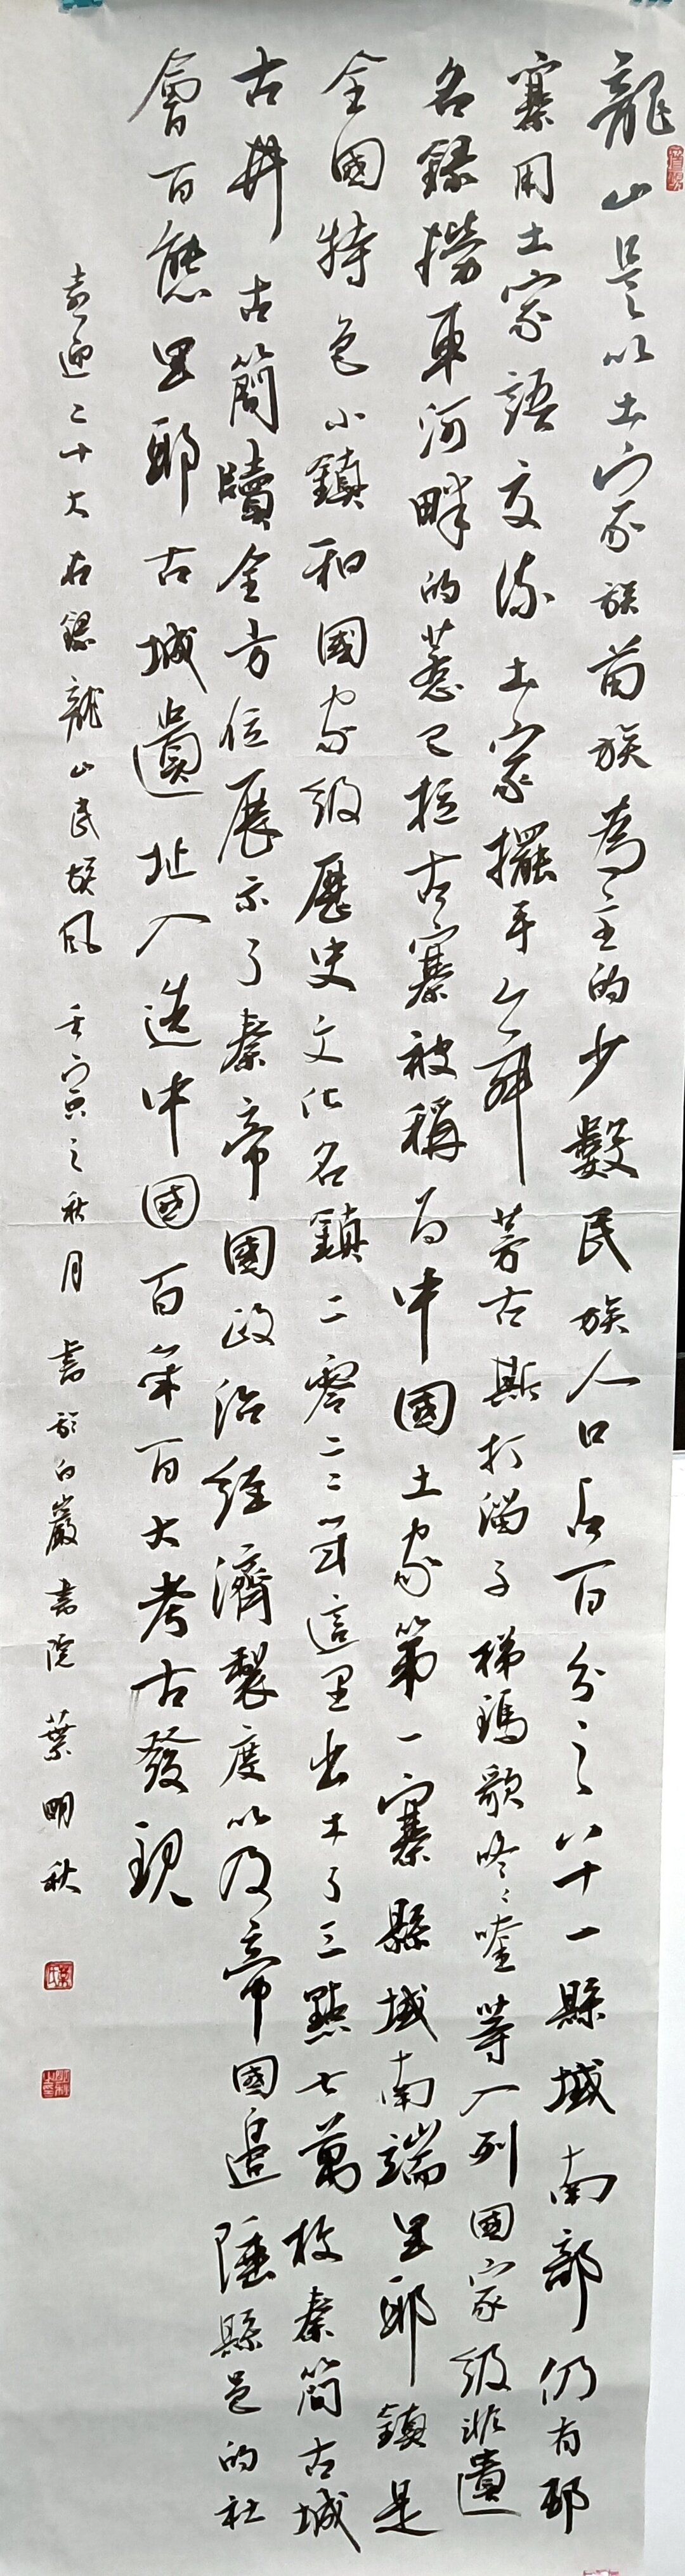 龍山是以土家族苗族為主的少數民族人口占百分之八十一縣域南部仍有部
寨用土家語交流土家擺手舞茅古斯打溜子梯瑪歌咚咚喹等入列國家級非遺
名錄撈車河畔的惹巴拉古寨被稱為中國土家第一寨縣域南端里耶鎮是
全國特色小鎮和國家級歷史文化名鎮二零零二年這里出土了三點七萬枚秦簡古城
古井古簡牘全方位展示了秦帝國政治經濟製度以及帝國邊陲縣邑的社
會百態里耶古城遺址入選中國百年百大考古發現
喜迎二十大存錄龍山民族風 壬寅之秋月 書於白巖書院 葉明秋